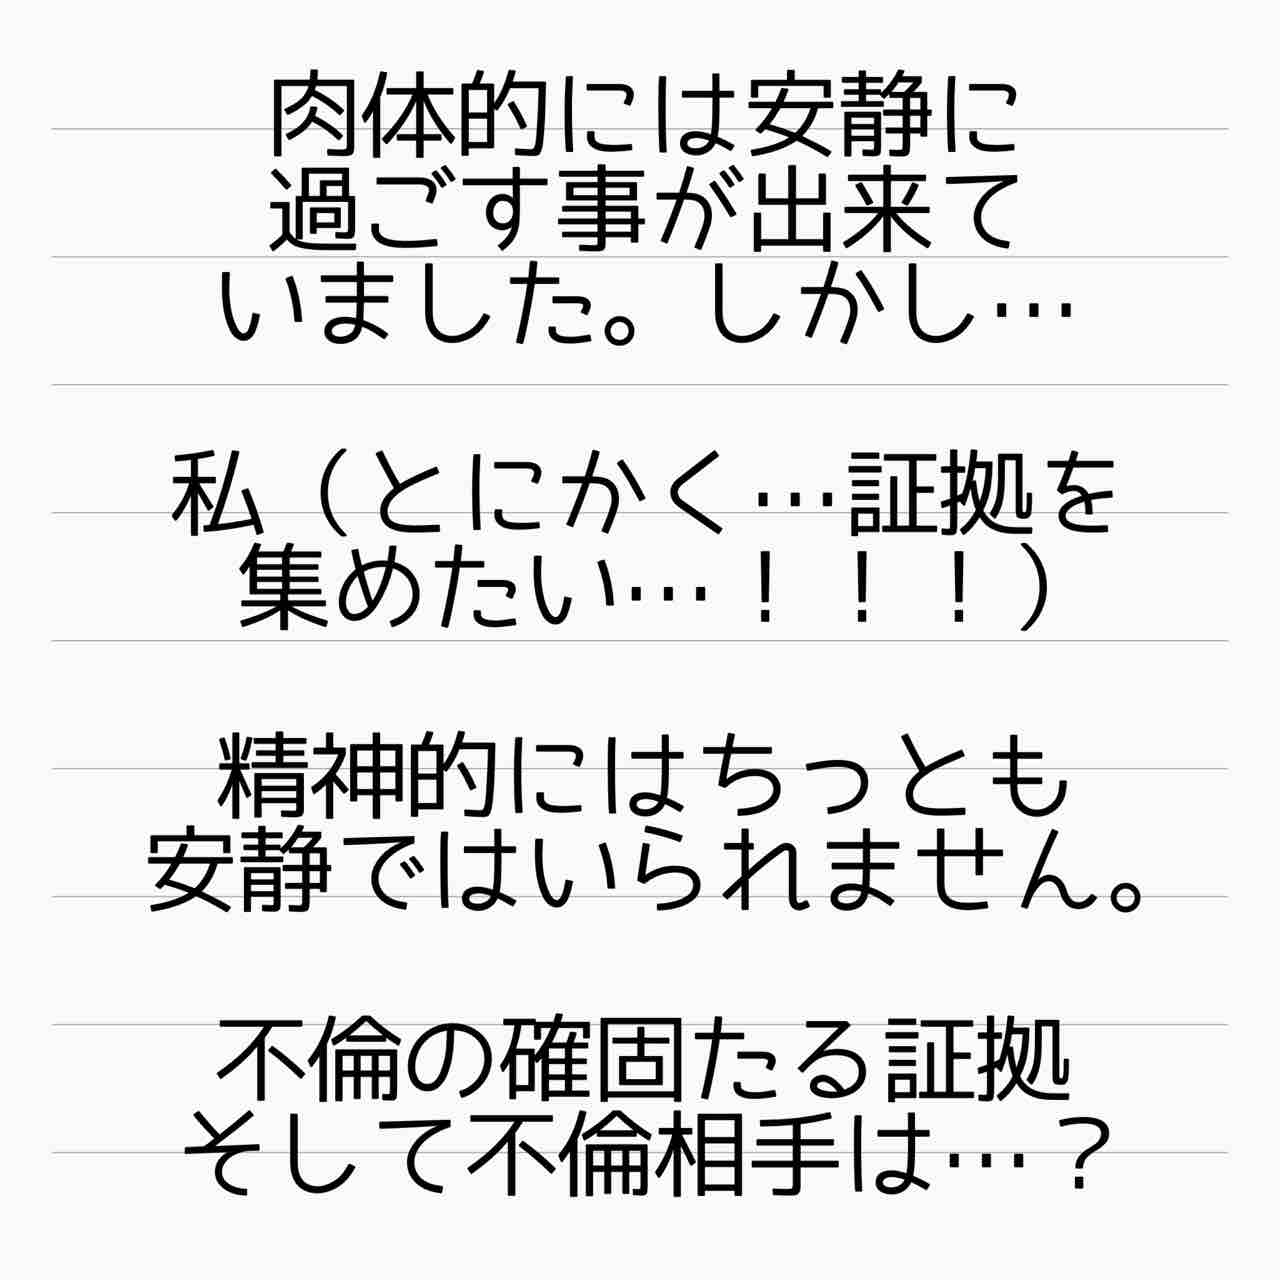 肉体的には安静に
過ごす事が出来て
いました。しかし…
私（とにかく…証拠を
集めたい…！！！）
精神的にはちっとも
安静ではいられません。
不倫の確固たる証拠
そして不倫相手は…？